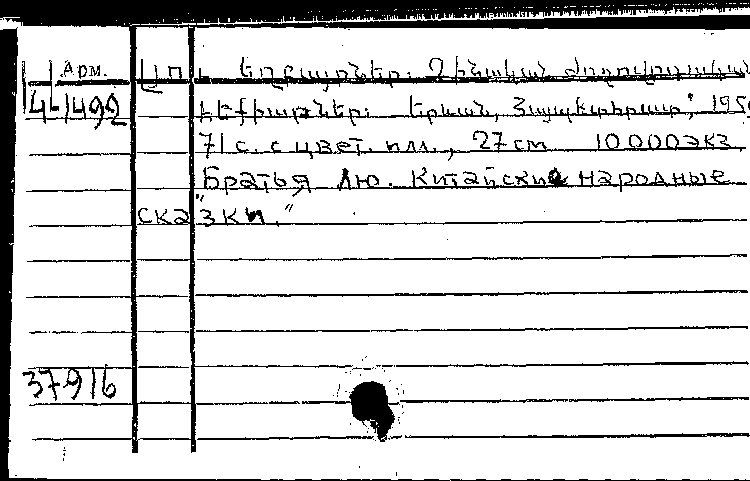 Арм.
4-1492
եղբայրներ. Չինական ժողովրդական
հեքիաթներ. Երևան, Հայպետհրատ, 195
71 с. с цвет. илл., 27 см 10000экз.
"Братья Лю. Китайские народные
сказки."
37916